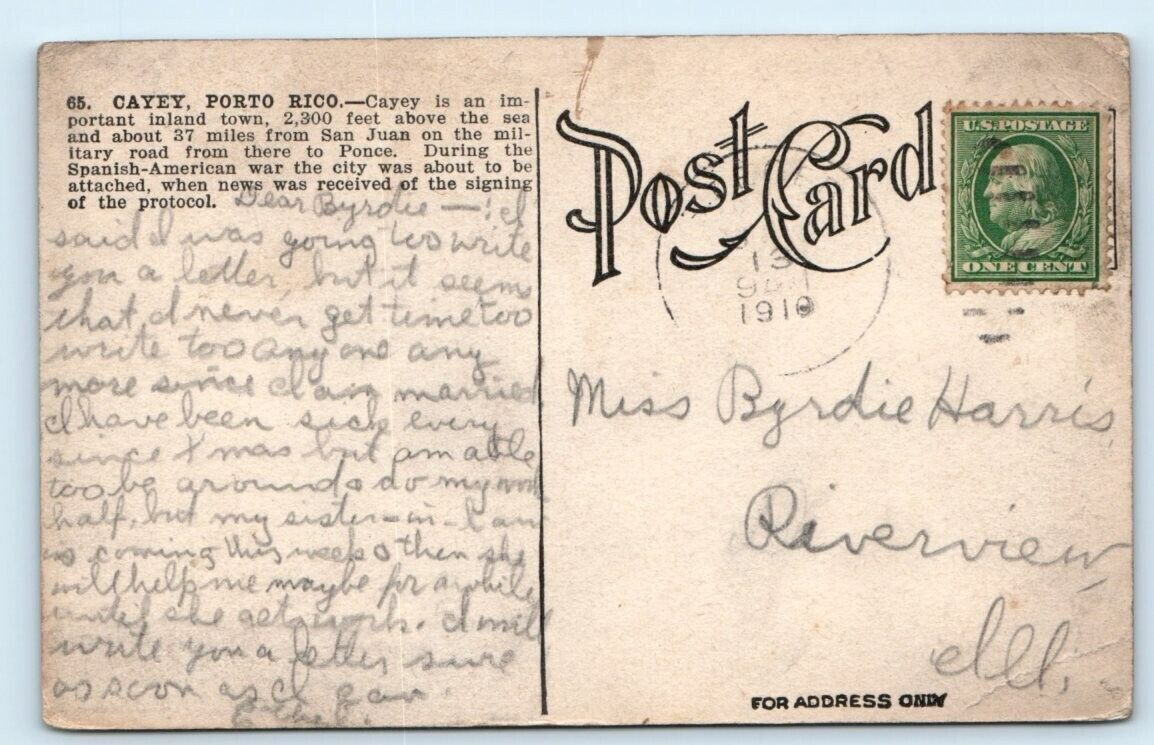 65. CAYEY, PORTO RICO.—Cayey is an im-
portant inland town, 2,300 feet above the sea
and about 37 miles from San Juan on the mil-
itary road from there to Ponce. During the
Spanish-American war the city was about to be
attached, when news was received of the signing
of the protocol.
Dear Byrdie — I
said I was going too write
you a letter, but it seems
that I never get time too
write too any one any
more since I am married
I have been sick every
since Xmas but am able
too be around & do my work
half, but my sister-in-law
is coming this week & then she
will help me maybe for awhile
until she gets work. I will
write you a letter sure
as soon as I can.
Ethel.
Post Card
U.S. POSTAGE
ONE CENT
13
9 AM
1910
Miss Byrdie Harris,
Riverview,
Ill.
FOR ADDRESS ONLY